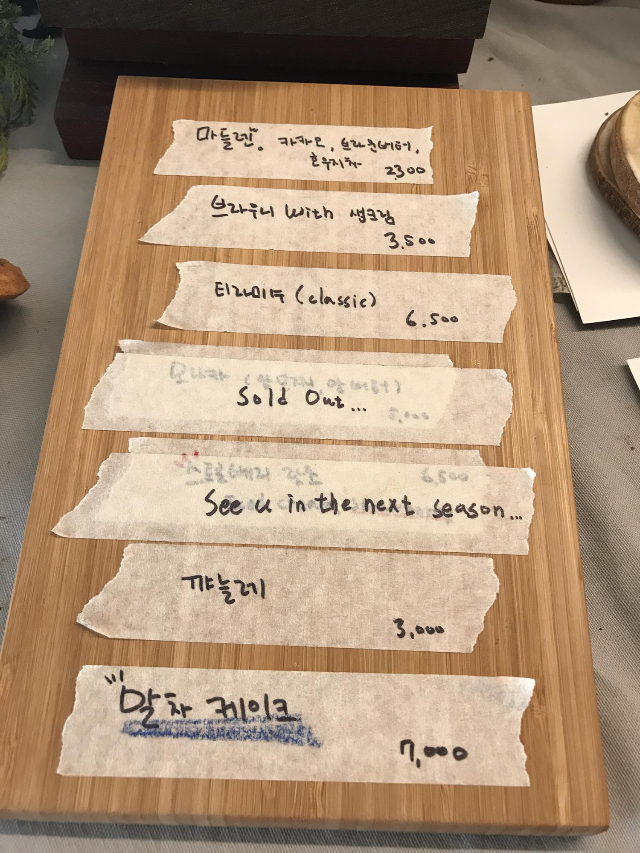 마들렌. 카카오, 브라운버터,
호우지차 2300
브라우니 with 생크림
3,500
티라미수 (classic)
6,500
Sold Out...
6,500
See u in the next season...
까눌레
3,000
말차 케이크
7,000